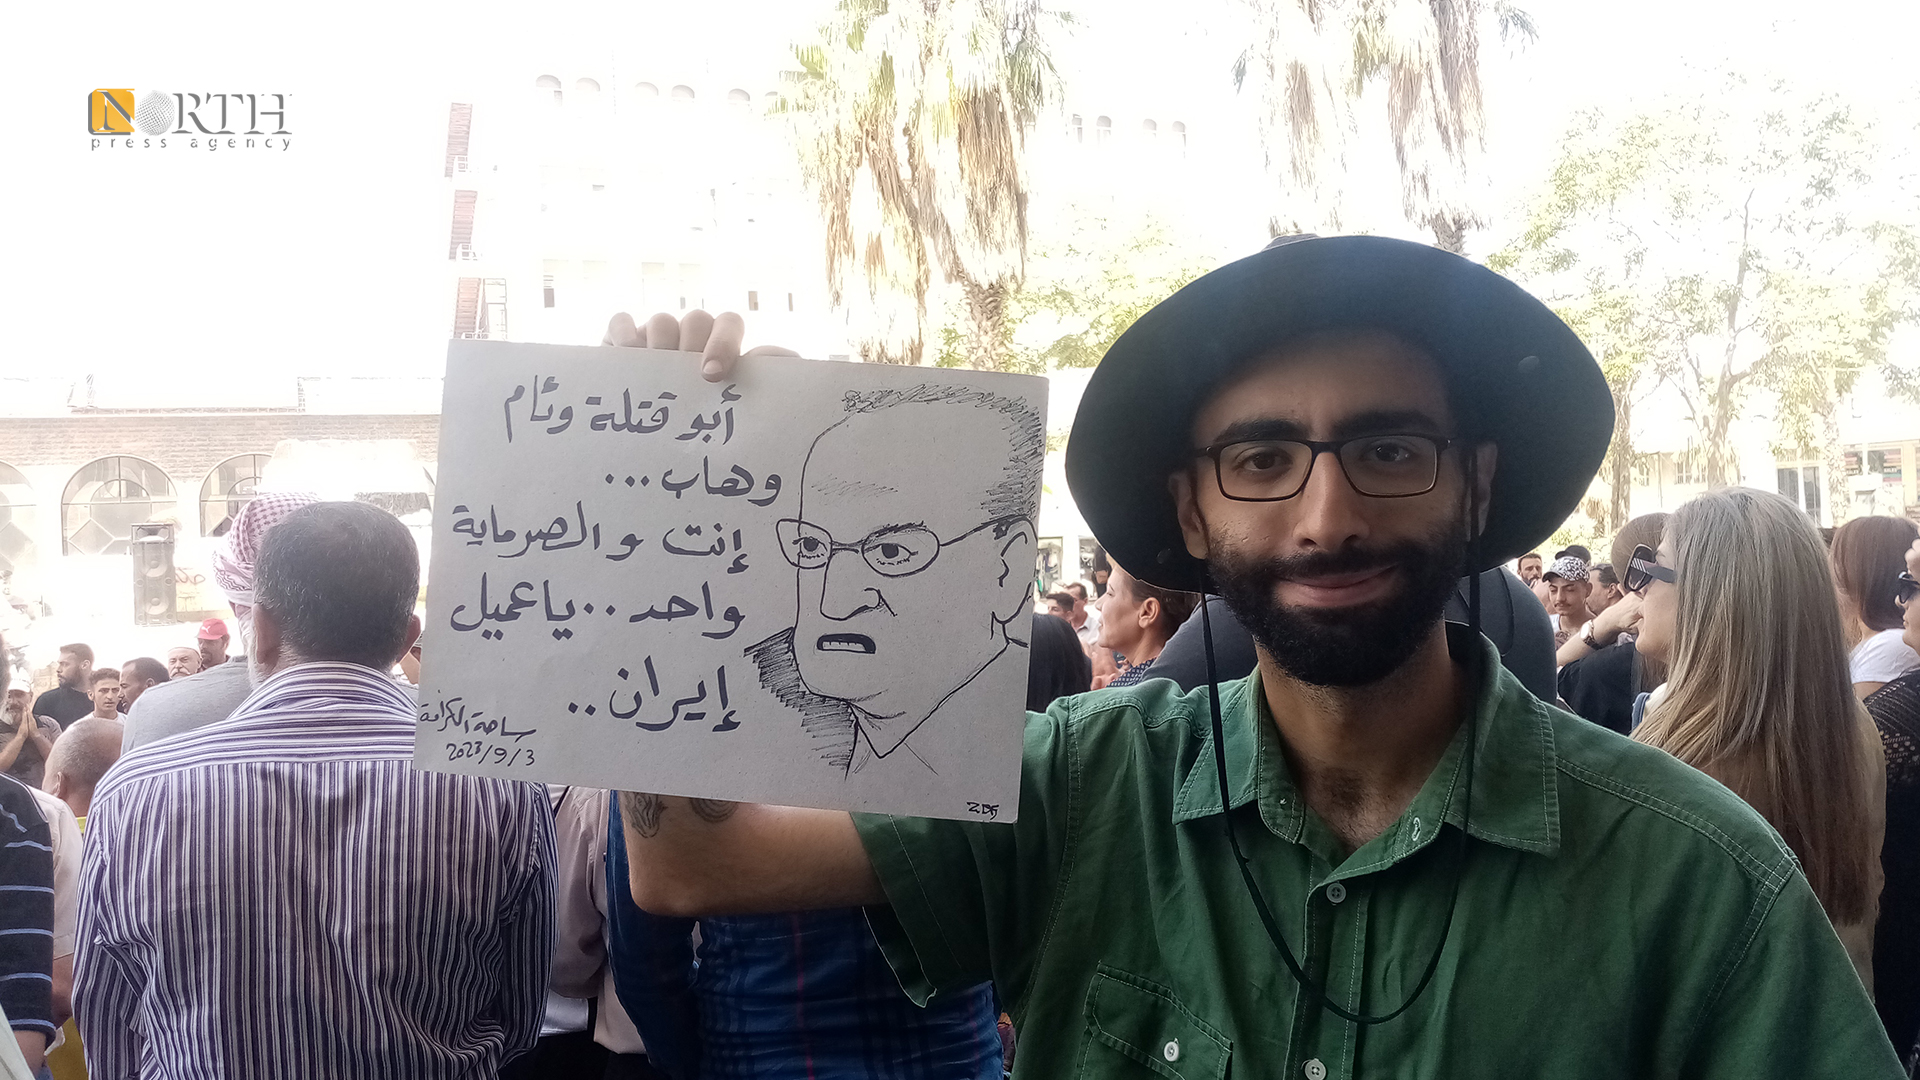 NORTH
press agency
أبو قتلة وئام
وهاب...
إنت والصرماية
واحد..ياعميل
إيران..
ساحة الكرامة
2023/9/3